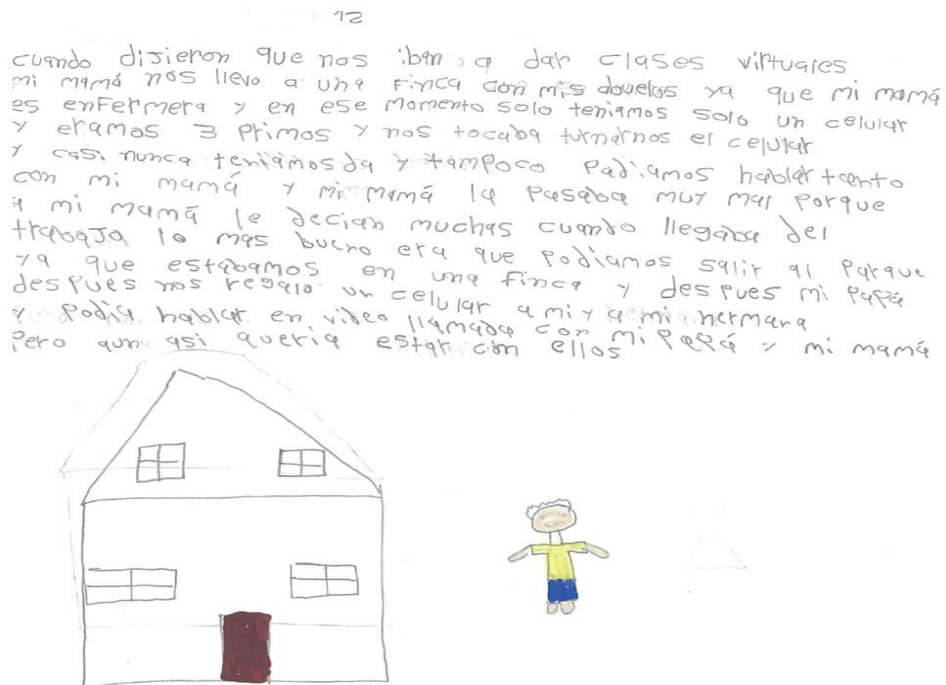 12
cuando dijieron que nos iban a dar clases virtuales
mi mamá nos llevo a una finca con mis abuelos ya que mi mamá
es enfermera y en ese momento solo teniamos solo un celular
y eramos 3 primos y nos tocaba turnarnos el celular
y casi nunca teniamos da y tampoco podiamos hablar tanto
con mi mamá y mi mamá la pasaba muy mal porque
a mi mamá le decian muchas cuando llegaba del
trabaja lo mas bueno era que podiamos salir al parque
ya que estabamos en una finca y despues mi papá
despues nos regalo un celular a mi y a mi hermana
y podia hablar en video llamada con mi papá y mi mamá
pero aun asi queria estar con ellos